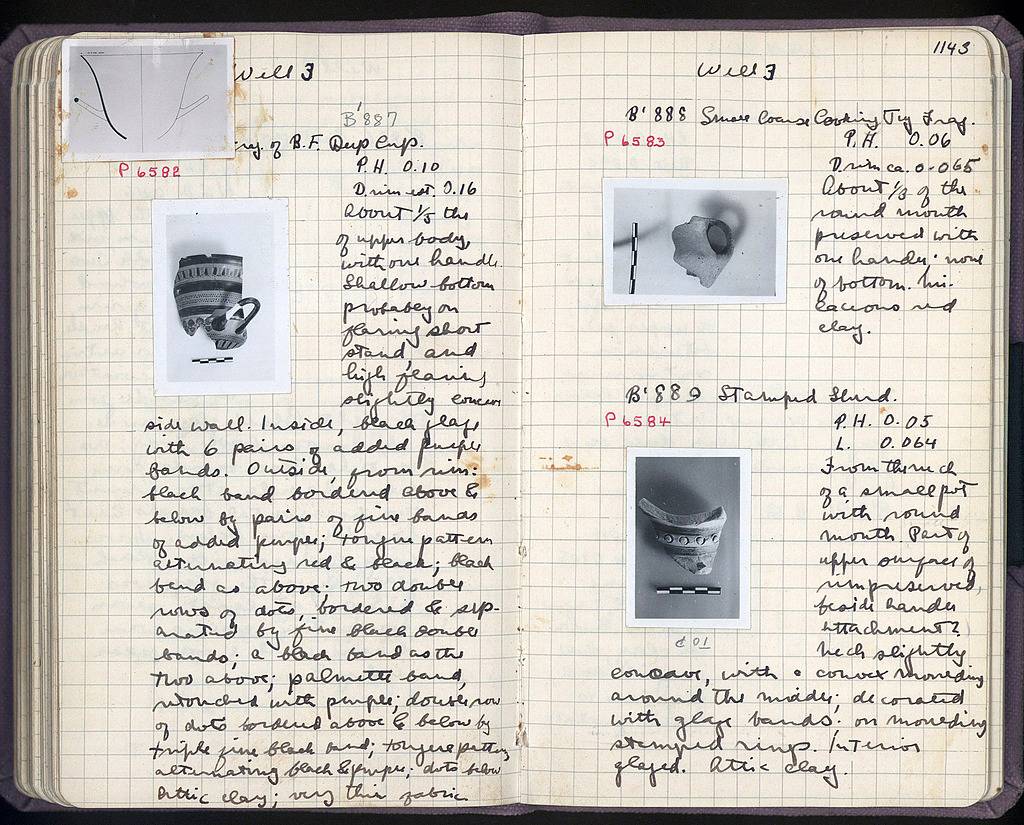 Well J
B'887
Frag. of B.F. Deep Cup.
P 6582
P.H. 0.10
D. rim est. 0.16
About 1/5 the
of upper body,
with one handle.
Shallow bottom
probably on
flaring short
stand, and
high flaring
slightly concave
side wall. Inside, black glaze
with 6 pairs of added purple
bands. Outside, from rim:
black band bordered above &
below by pairs of fine bands
of added purple; tongue pattern
alternating red & black; black
band as above; two double
rows of dots, bordered & sep-
arated by fine black double
bands; a black band as the
two above; palmette band,
retouched with purple; double row
of dots bordered above & below by
triple fine black band; tongue pattern
alternating black & purple; dots below
Attic clay; very thin fabric
1143
Well J
B'888 Small Coarse Cooking Jug Frag.
P 6583
P.H. 0.06
D. rim ca. 0.065
About 1/3 of the
round mouth
preserved with
one handle: none
of bottom. Mi-
caceous red
clay.
B'889 Stamped Sherd.
P 6584
P.H. 0.05
L. 0.064
From the neck
of a small pot
with round
mouth. Part of
upper surface of
rim preserved,
beside handle
attachment?
Neck slightly
concave, with a convex moulding
around the middle; decorated
with glaze bands: on moulding
stamped rings. Interior
glazed. Attic clay.